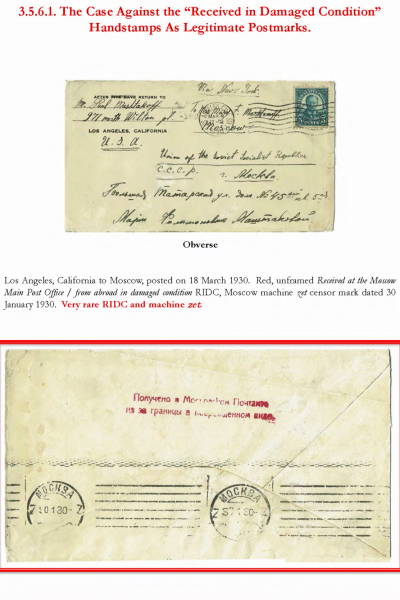 3.5.6.1. The Case Against the “Received in Damaged Condition”
Handstamps As Legitimate Postmarks.
Via New York
AFTER FIVE DAYS RETURN TO
Mr. Paul
971 north Wilton pl.
LOS ANGELES, CALIFORNIA
U.S.A.
Moscow
Union of the Soviet Socialist Republics
С.С.С.Р. г. Москва
Татарская ул. дом № 45 кв. 5
Obverse
Los Angeles, California to Moscow, posted on 18 March 1930. Red, unframed Received at the Moscow
Main Post Office / from abroad in damaged condition RIDC, Moscow machine zet censor mark dated 30
January 1930. Very rare RIDC and machine zet.
Получено в Московском Почтамте
из за границы в поврежденном виде.
МОСКВА
МОСКВА